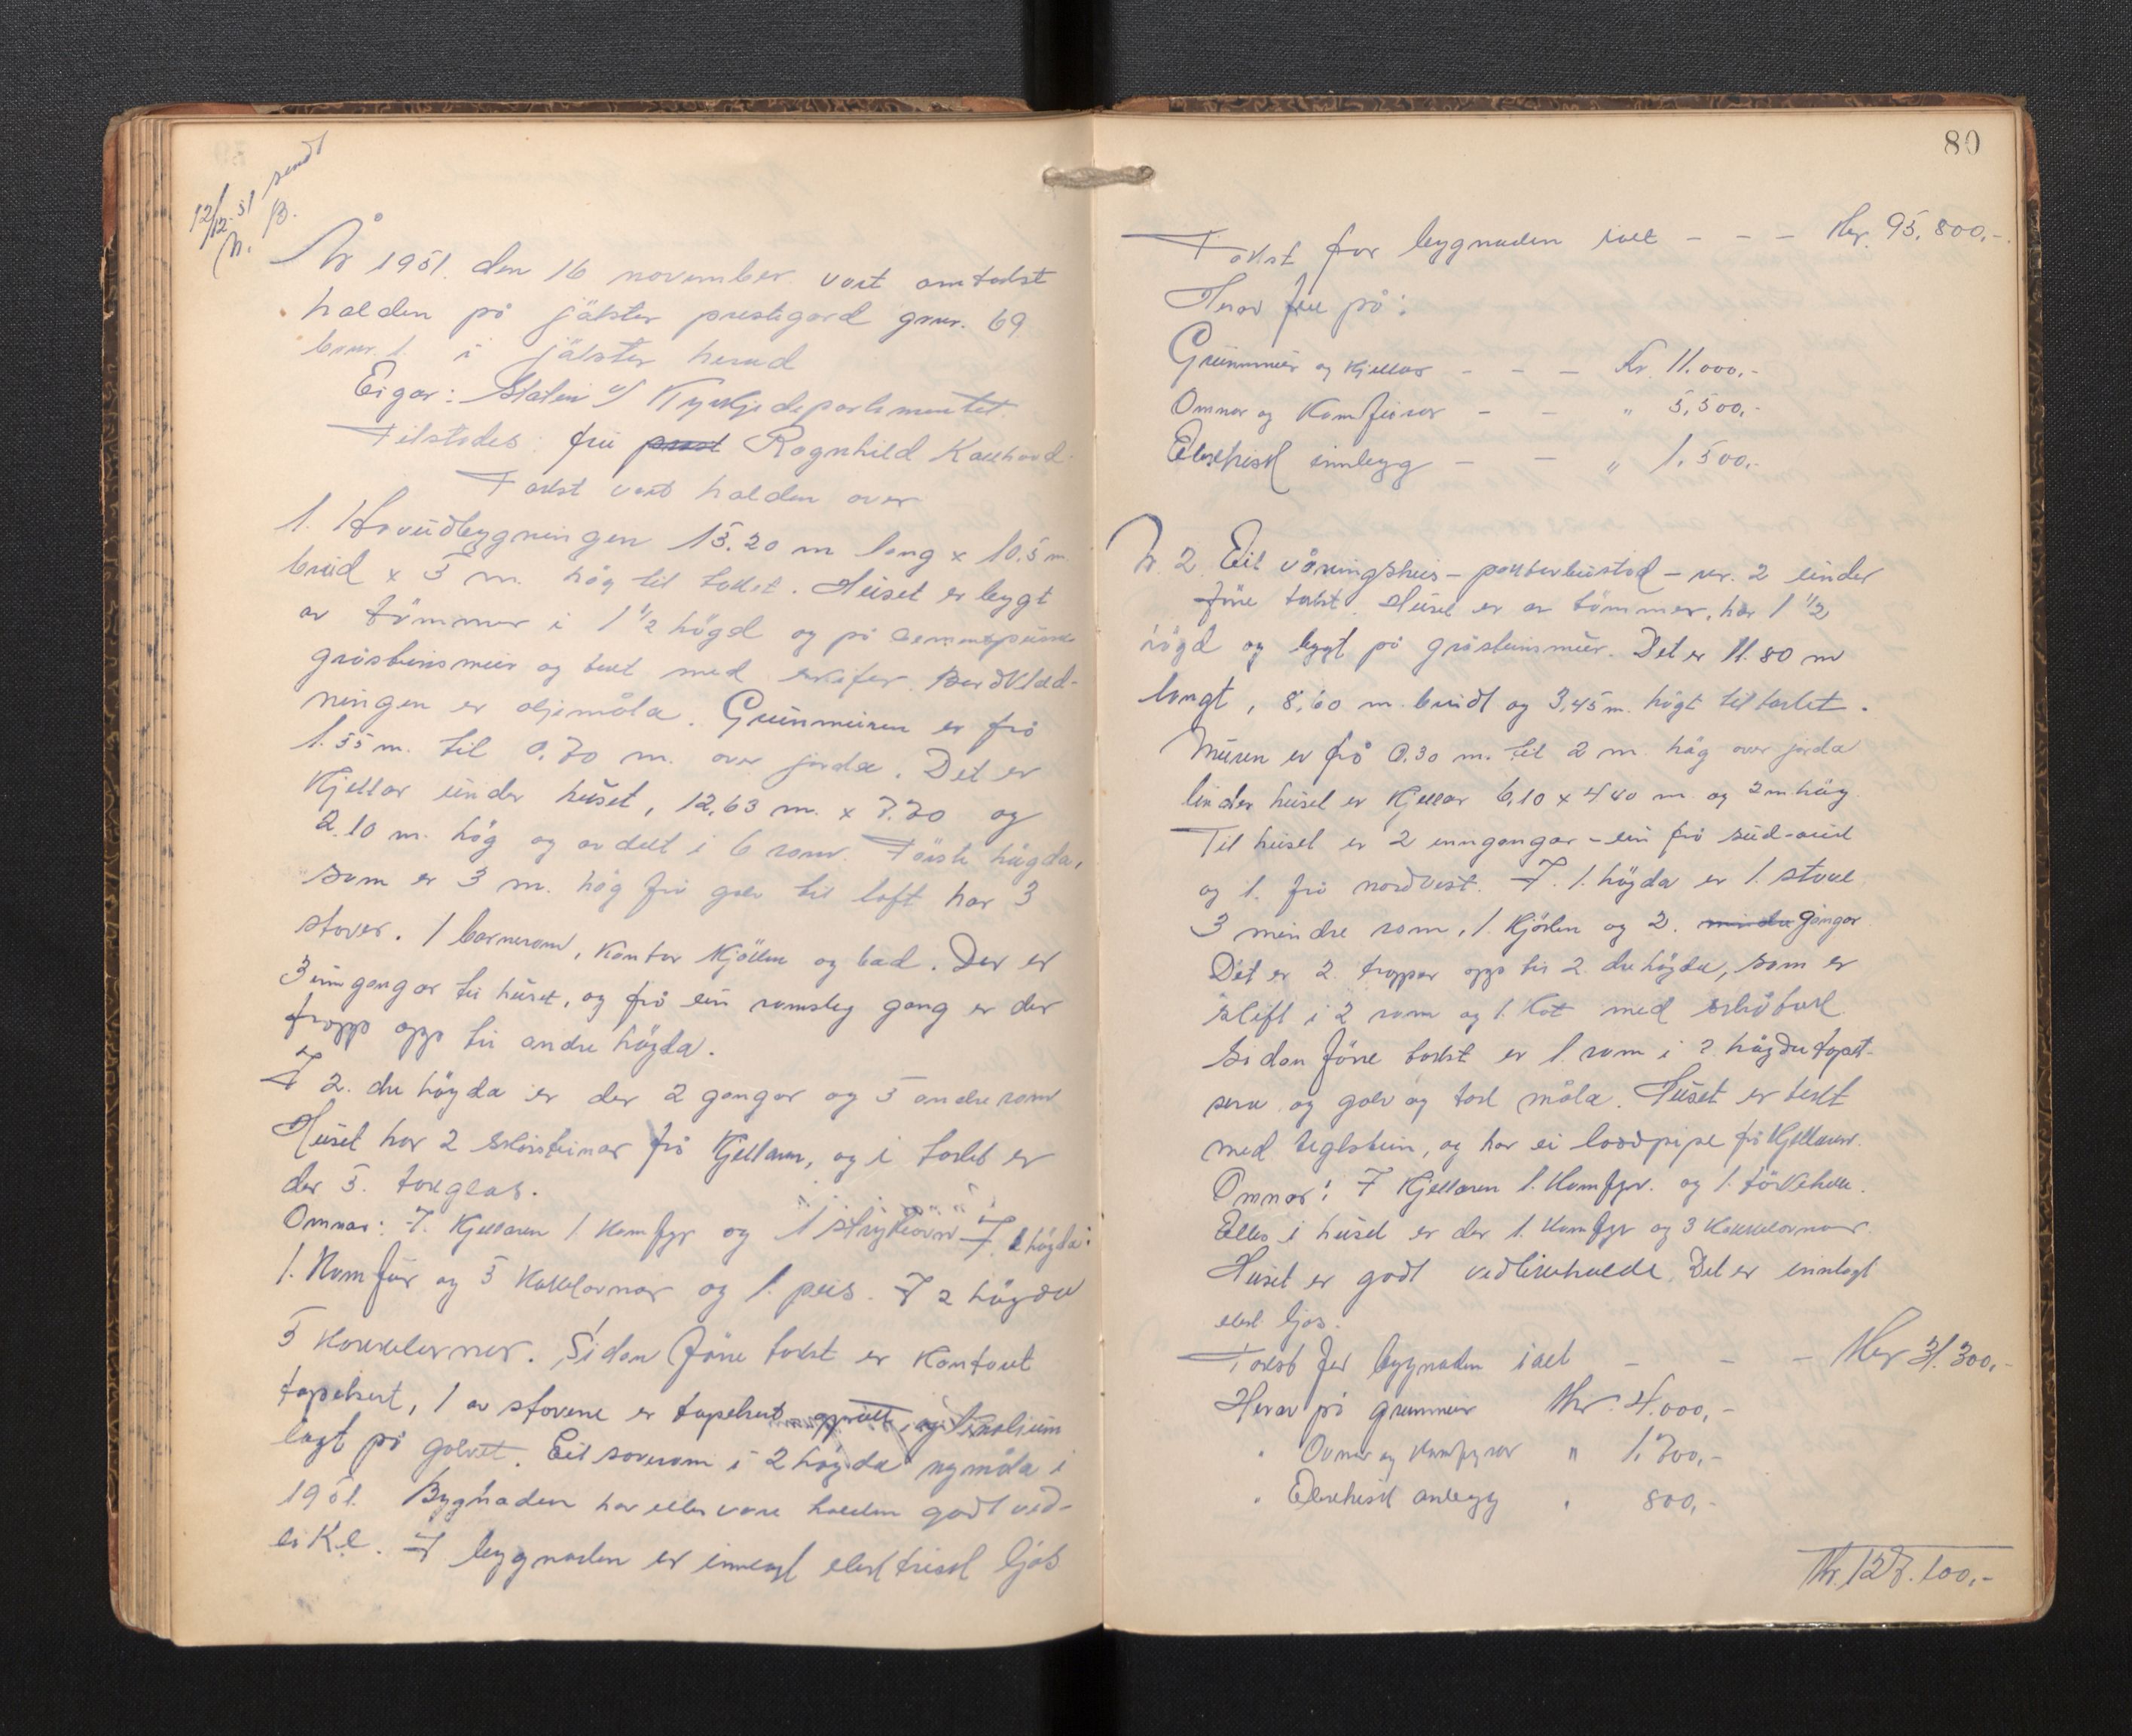 12/12.51 sendt
N. B.
År 1951. den 16 november vart omtakst
halden på jölster prestegard gnr. 69
bnr. 1. i jölster herad
Eigar: Staten v/ Kyrkjedepartementet.
Tilstades: fru prost Ragnhild Kaushand
Takst vart halden over
1. Hovudbygningen 15.20 m lang x 10.5 m
breid x 5 m. høg til taket. Huset er bygt
av tömmer i 1 1/2 högd og på
gråsteinsmur og tekt med skifer. Bordklæd-
ningen er oljemåla. Grunnmuren er frå
1.55 m. til 0.70 m. over jorda. Det er
Kjellar under huset, 12,63 m. x 7.70 og
2.10 m. høg og avdelt i 6 rom. Förste högda,
som er 3 m. høg frå golv til loft har 3
stover. 1 barnerom, kontor kjöken og bad. Der er
3 inngangar til huset, og frå ein romsleg gang er der
tropp opp til andre högda.
I 2. dre högda er der 2 gangar og 5 andre rom
Huset har 2 skorsteinar frå Kjellaren, og i taket er
der 5. takglas.
Omnar: I. Kjellaren 1 komfyr og 1 strykeovn I. 1 högda:
1. Komfur og 5 kakkelovnar og 1. peis. I 2 högda
5 kakkelovnar. Sidan förre takst er kontoret
tapetsert, 1 av stovene er tapetsert og linolium
lagt på golvet. Eit soverom i 2 högda nymåla i
1951. Bygnaden har elles vore halden godt ved-
like. I bygnaden er innlagt elektrisk ljos
80
Takst for bygnaden ialt - - - Kr. 95.800,-
Herav fell på:
Grunnmur og kjellar - - - Kr. 11.000,-
Omnar og Komfurar - - " 5,500,-
Elektrisk innlegg - - " 1.500,-
Nr. 2. Eit våningshus - paktarbustad - nr. 2 under
förre takst. Huset er av tömmer, har 1 1/2
högd og bygt på gråsteinsmur. Det er 11.80 m
langt, 8,60 m. breidt og 3,45 m. högt til taket.
Muren er frå 0.30 m. til 2 m. høg over jorda
Under huset er Kjellar 6,10 x 4 40 m og 2 m. høg
Til huset er 2 inngangar - ein frå sud-aust
og 1. frå nordvest. I. 1. högda er 1. stove
3 mindre rom, 1. Kjöken og 2. mindre gangar
Det er 2. troppar opp til 2. dre högda, som er
skift i 2 rom og 1. kot med skråtak
Sidan förre takst er 1. rom i 2. högda tapet-
sera og golv og tak måla. Huset er tekt
med teglstein, og har ei loddpipe frå Kjellaren.
Omnar: I Kjellaren 1. Komfyr. og 1. törkehelle.
Elles i huset er der 1. komfyr og 3 Kakkelovnar.
Huset er godt vedlikehalde. Det er innlagt
elek. ljos.
Takst for bygnaden ialt - - - Kr 31.300,-
Herav på grunnmur Kr. 4.000,-
" Ovnar og komfyrar " 1.700,-
" Elektrisk anlegg " 800,-
Kr. 127.100,-